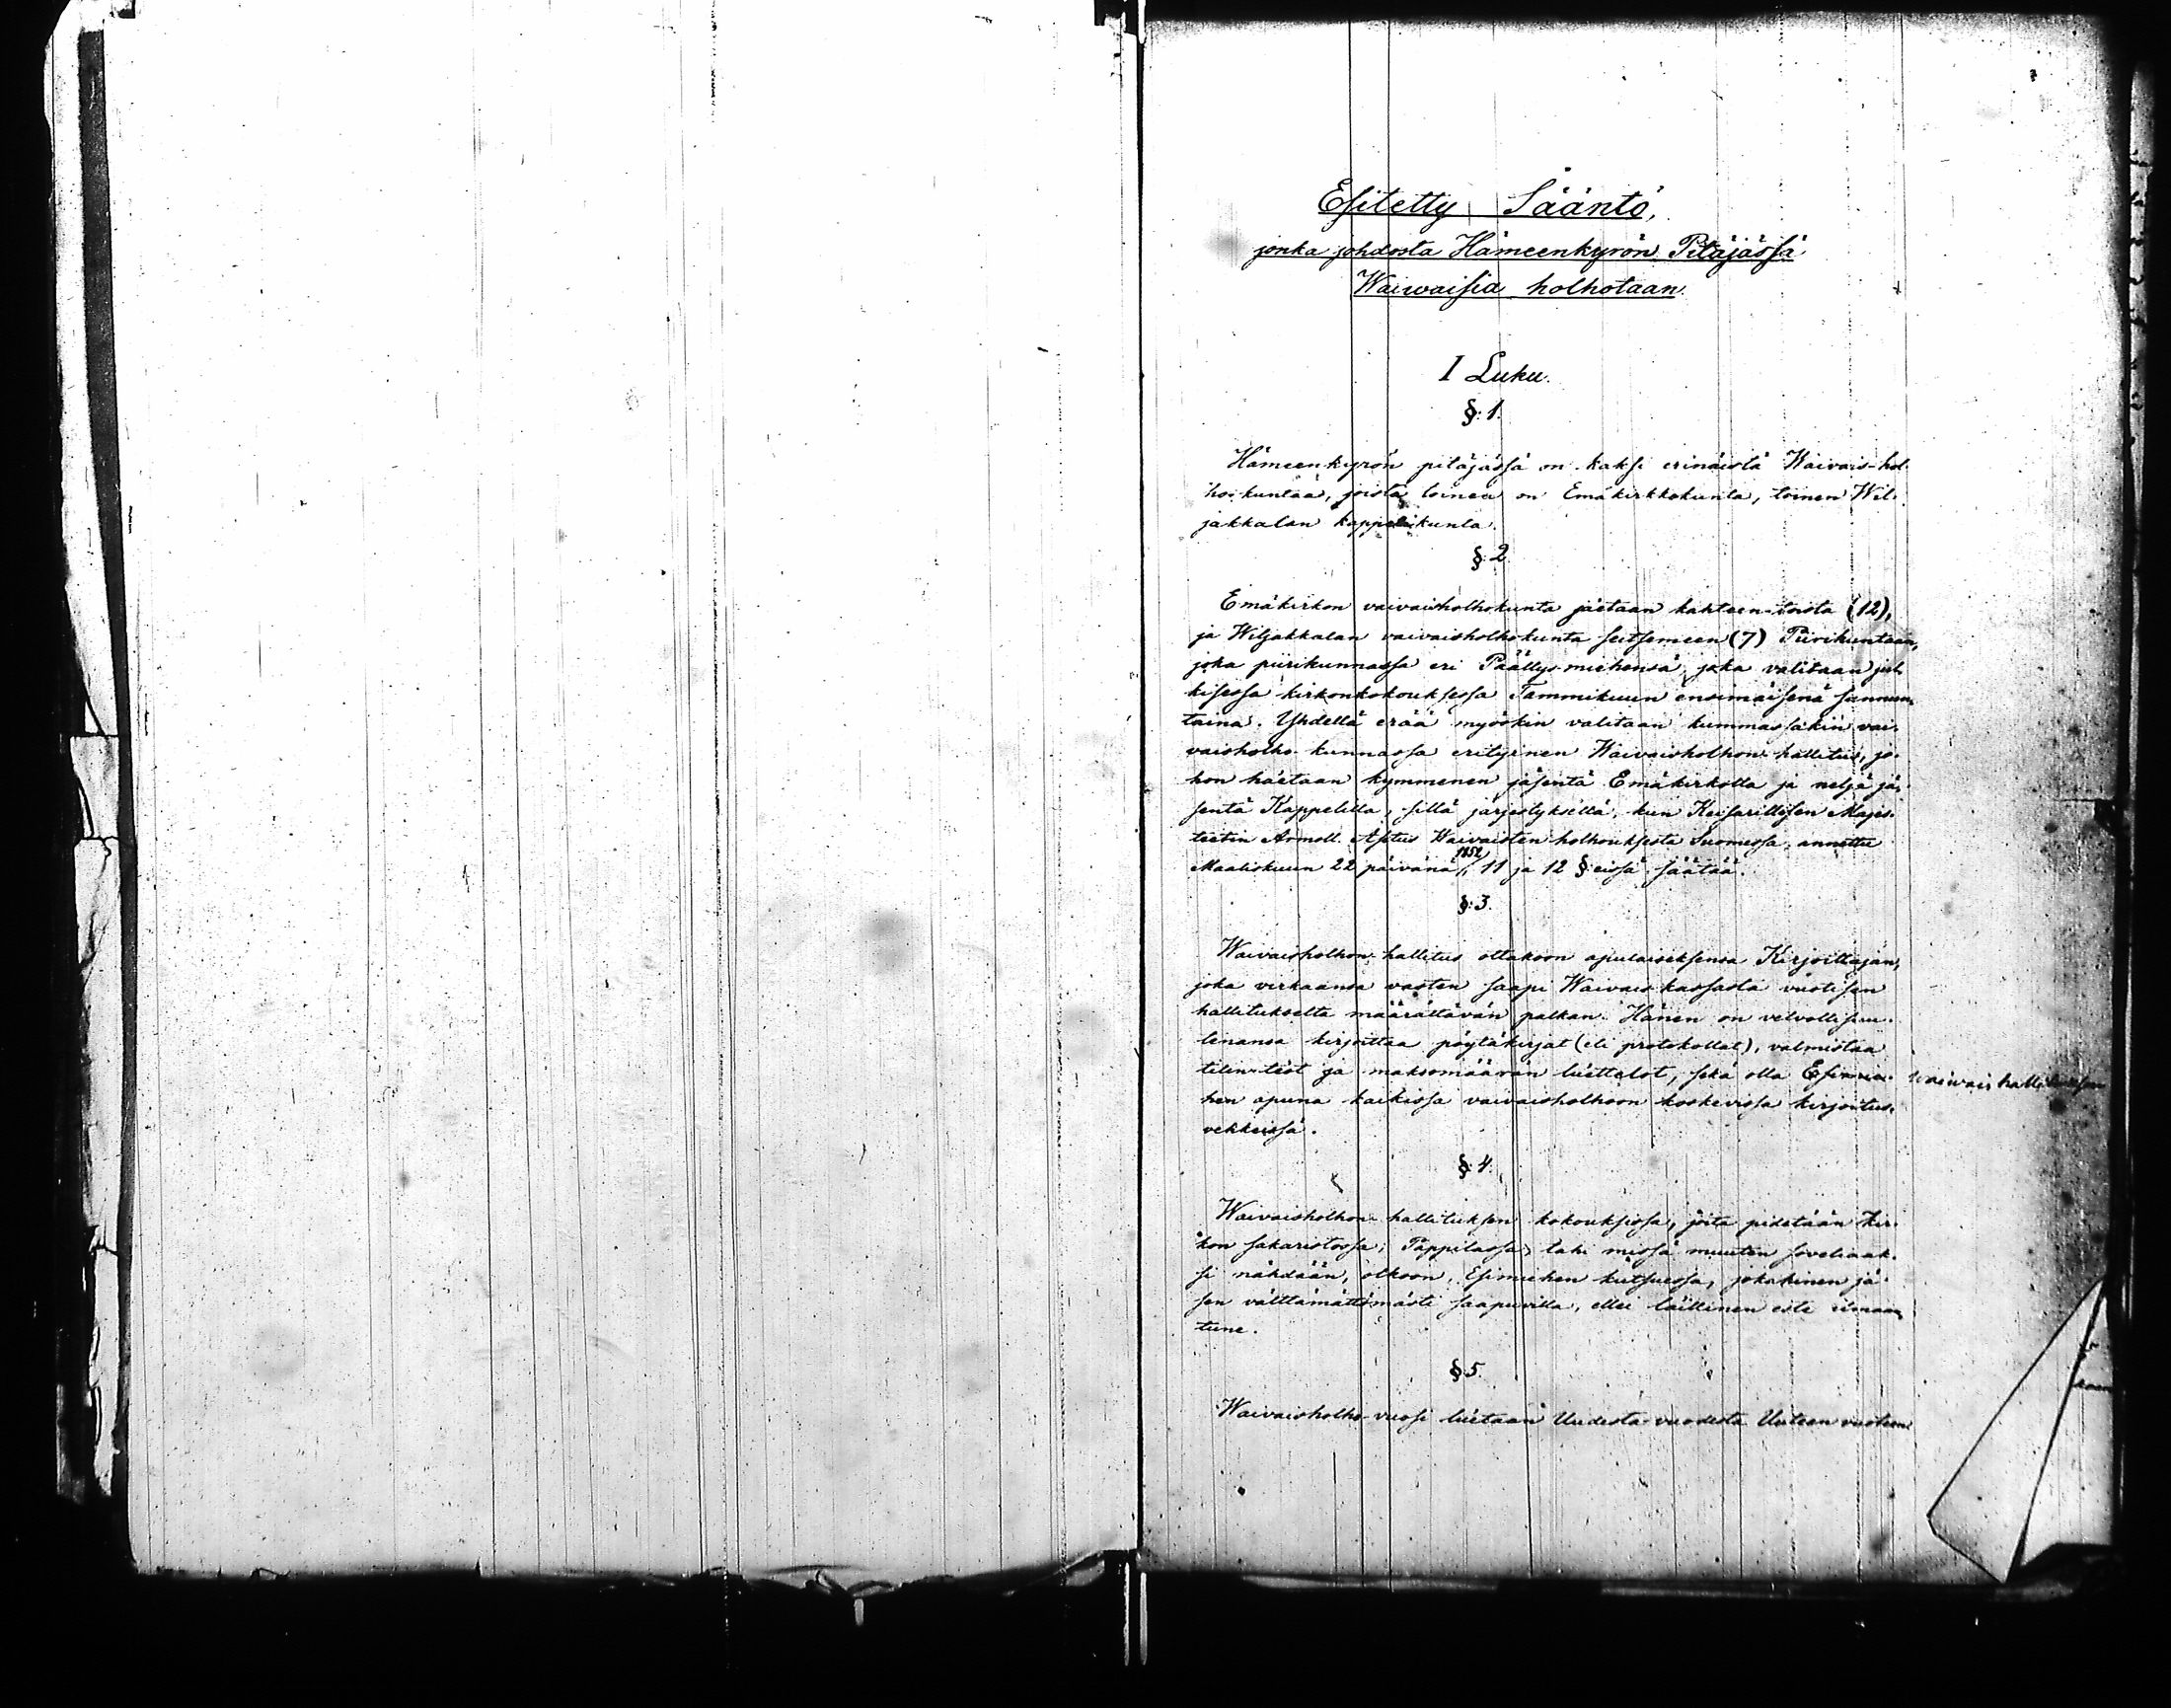 Esitetty Sääntö,
jonka johdosta Hämeenkyrön Pitäjässä
Waiwaisia holhotaan.
I Luku.
§: 1.
Hämeenkyrön pitäjässä on kaksi erinäistä Waivais-hol-
hoi-kuntaa, joista toinen on Emäkirkkokunta, toinen Wil-
jakkalan kappelikunta.
§: 2.
Emäkirkon vaivaisholhokunta jaetaan kahteen-toista (12),
ja Wiljakkalan vaivaisholhokunta seitsemeen (7) Piirikuntaan,
joka piirikunnassa eri Päällys-miehensä, joka valitaan jul-
kisessa kirkonkokouksessa Tammikuun ensimäisenä sunnun-
taina. Yhdellä erää myöskin valitaan kummassakin vai-
vaisholho-kunnassa erityinen Waivaisholhon-hallitus, jo-
hon haetaan kymmenen jäsentä Emäkirkolla ja neljä jä-
sentä Kappelilla, sillä järjestyksellä, kun Keisarillisen Majes-
teetin Armoll. Asetus Waivaisten holhouksesta Suomessa, annettu
Maaliskuun 22 päivänä 1852, 11 ja 12 §:eissä säätää.
§: 3.
Waivaisholhon-hallitus ottakoon apulaiseksensa Kirjoittajan,
joka virkaansa vasten saapi Waivais-kassasta vuotisen
hallitukselta määrättävän palkan. Hänen on velvollisuu-
tenansa kirjoittaa pöytäkirjat (eli protokollat), valmistaa
tilin-teot ja maksomäärän luettelot, sekä olla Esimie- waivais hallituksen
hen apuna kaikissa vaivaisholhoon koskevissa kirjoitus-
vekkeissä.
§: 4.
Waivaisholhon-hallituksen kokouksissa, joita pidetään Kir-
kon sakaristossa, Pappilassa, tahi missä muuten soveliaak-
si nähdään, olkoon, Esimiehen kutsuessa, jokahinen jä-
sen välttämättömästi saapuvilla, ellei laillinen este ilmaan-
tune.
§: 5.
Waivaisholho-vuosi luetaan Uudesta-vuodesta Uuteen vuoteen